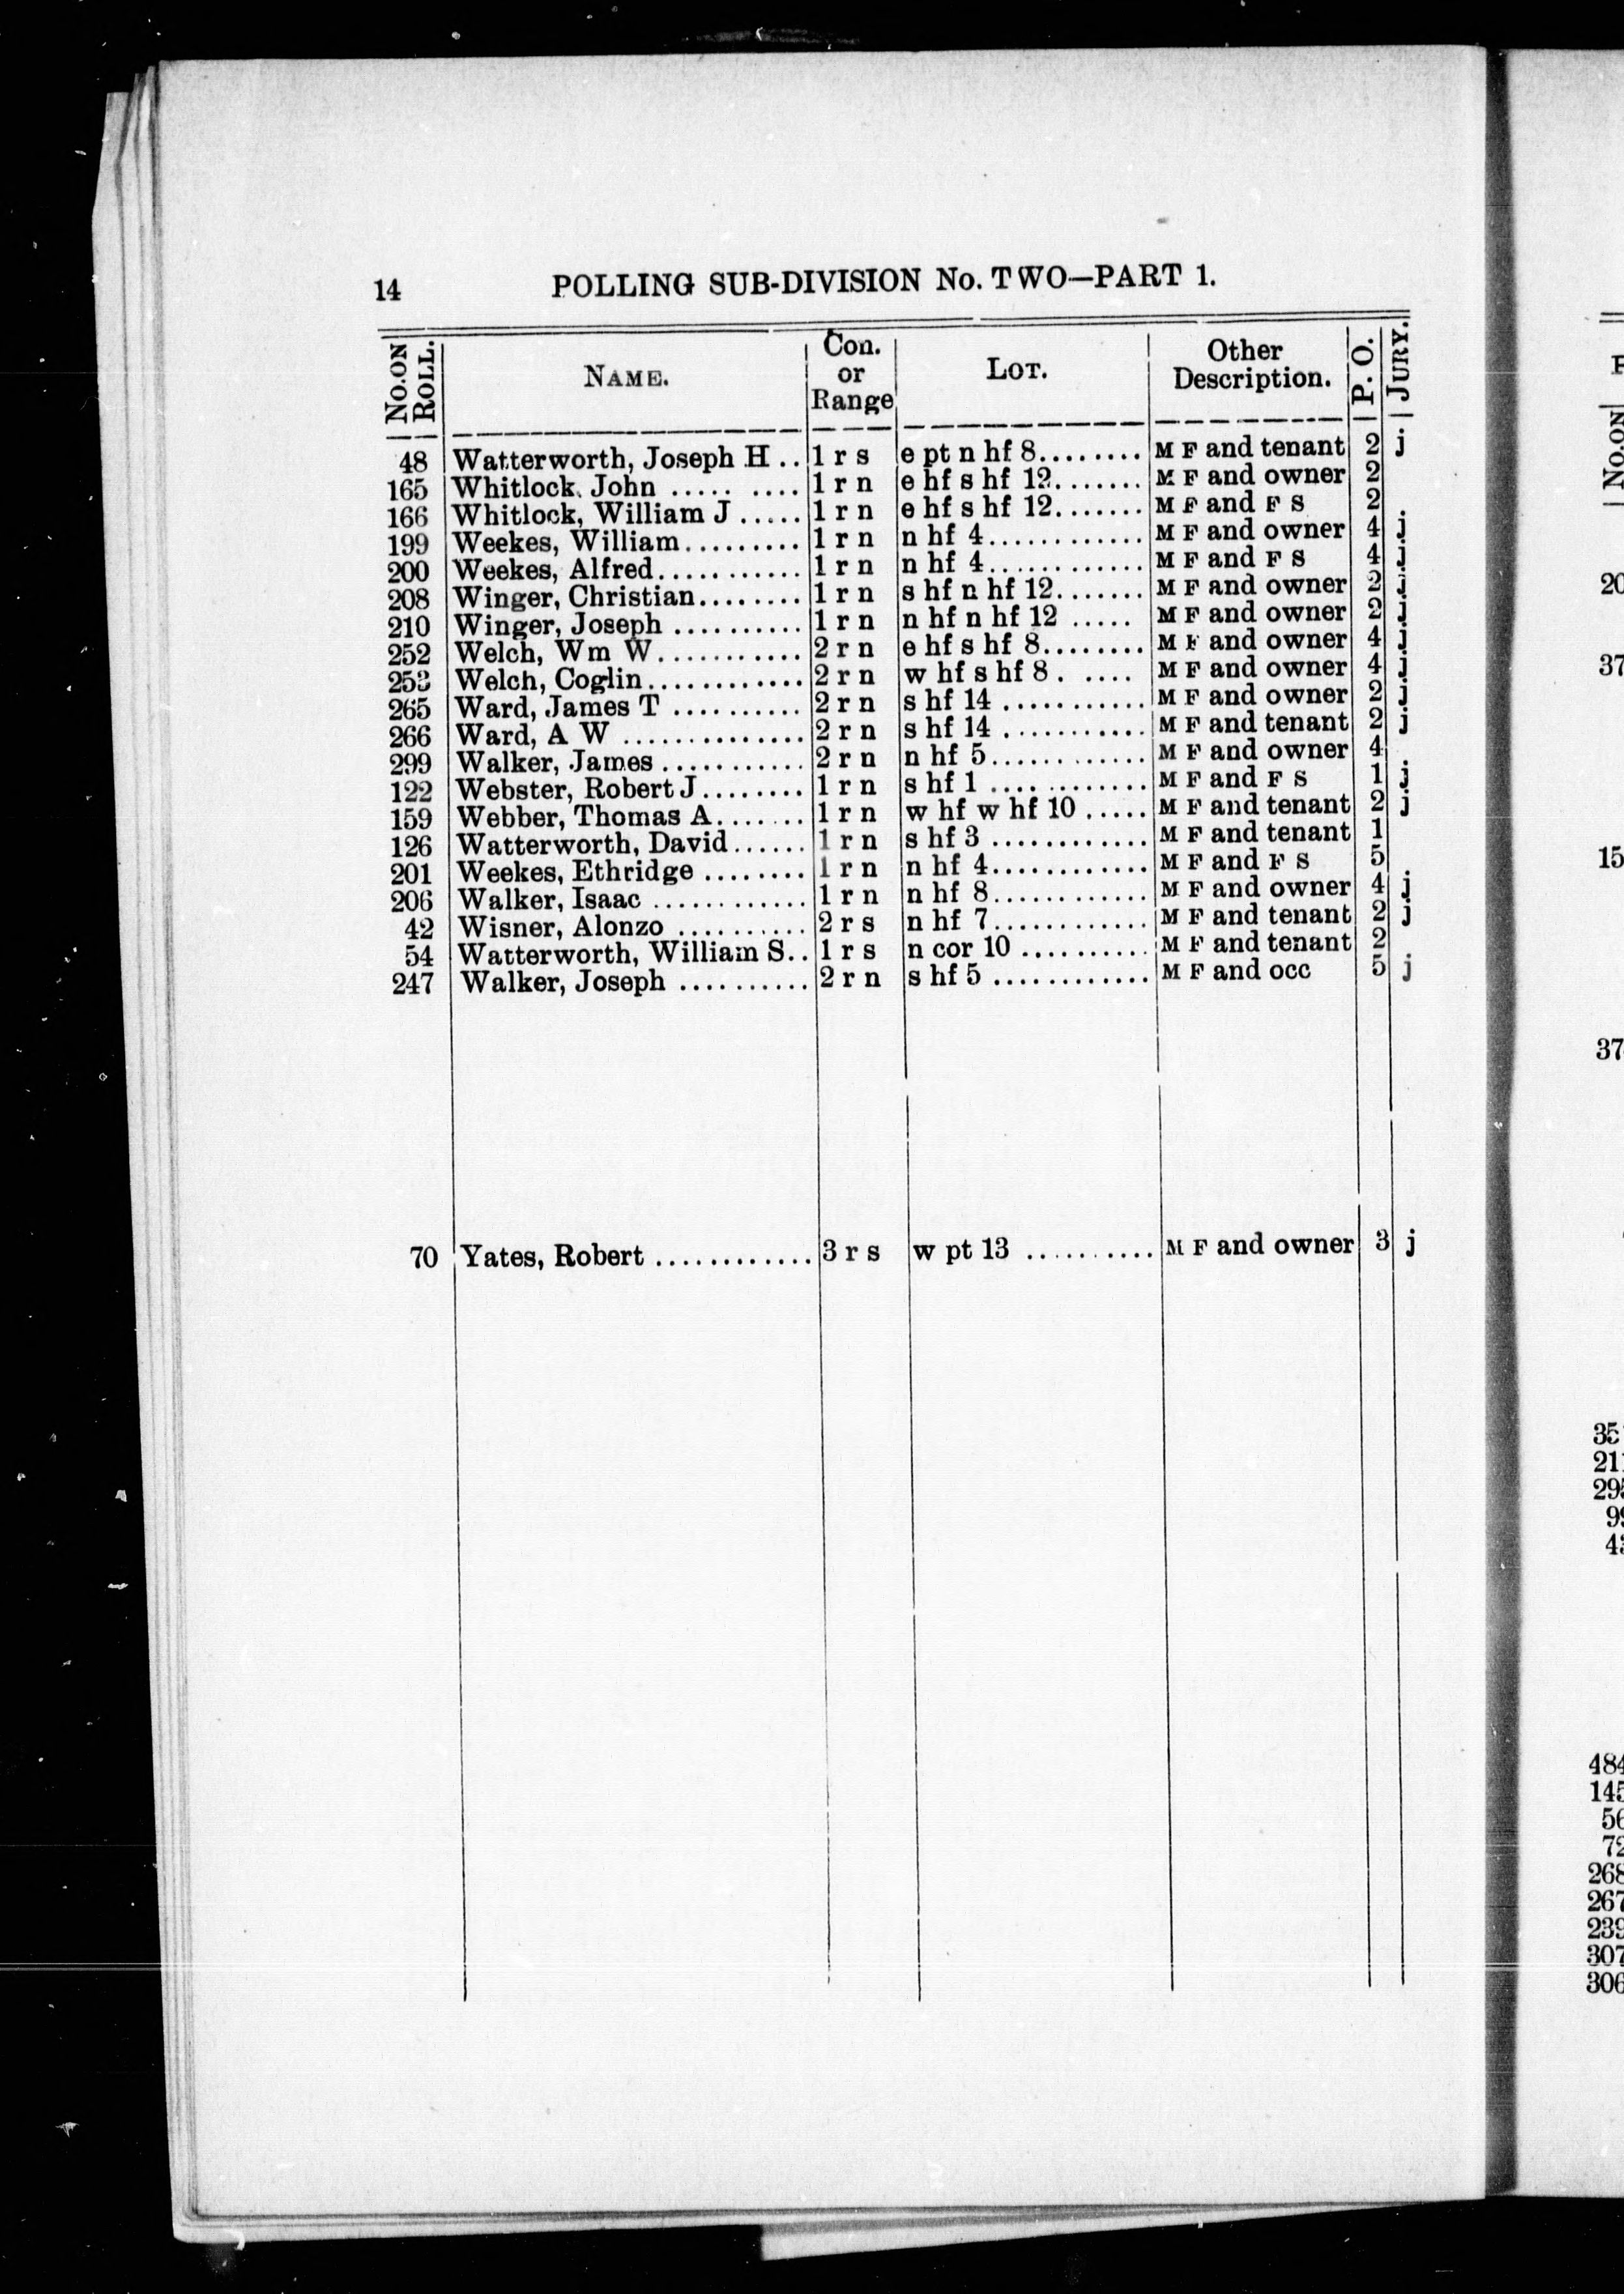 14 POLLING SUB-DIVISION No. TWO—PART 1.
No. ON ROLL. NAME. Con. or Range LOT. Other Description. P. O. JURY.
48 Watterworth, Joseph H .. 1 r s e pt n hf 8........ M F and tenant 2 j
165 Whitlock, John ..... .... 1 r n e hf s hf 12....... M F and owner 2
166 Whitlock, William J ..... 1 r n e hf s hf 12....... M F and F S 2
199 Weekes, William......... 1 r n n hf 4............ M F and owner 4 j
200 Weekes, Alfred........... 1 r n n hf 4............ M F and F S 4 j
208 Winger, Christian........ 1 r n s hf n hf 12....... M F and owner 2 j
210 Winger, Joseph .......... 1 r n n hf n hf 12 ..... M F and owner 2 j
252 Welch, Wm W........... 2 r n e hf s hf 8........ M F and owner 4 j
253 Welch, Coglin............ 2 r n w hf s hf 8. ..... M F and owner 4 j
265 Ward, James T .......... 2 r n s hf 14 ........... M F and owner 2 j
266 Ward, A W .............. 2 r n s hf 14 ........... M F and tenant 2 j
299 Walker, James ........... 2 r n n hf 5............ M F and owner 4
122 Webster, Robert J........ 1 r n s hf 1 ............ M F and F S 1 j
159 Webber, Thomas A....... 1 r n w hf w hf 10 ..... M F and tenant 2 j
126 Watterworth, David...... 1 r n s hf 3 ............ M F and tenant 1
201 Weekes, Ethridge ........ 1 r n n hf 4............ M F and F S 5
206 Walker, Isaac ............ 1 r n n hf 8............ M F and owner 4 j
42 Wisner, Alonzo .......... 2 r s n hf 7............ M F and tenant 2 j
54 Watterworth, William S.. 1 r s n cor 10 .......... M F and tenant 2
247 Walker, Joseph .......... 2 r n s hf 5 ............ M F and occ 5 j
70 Yates, Robert ............ 3 r s w pt 13 .......... M F and owner 3 j